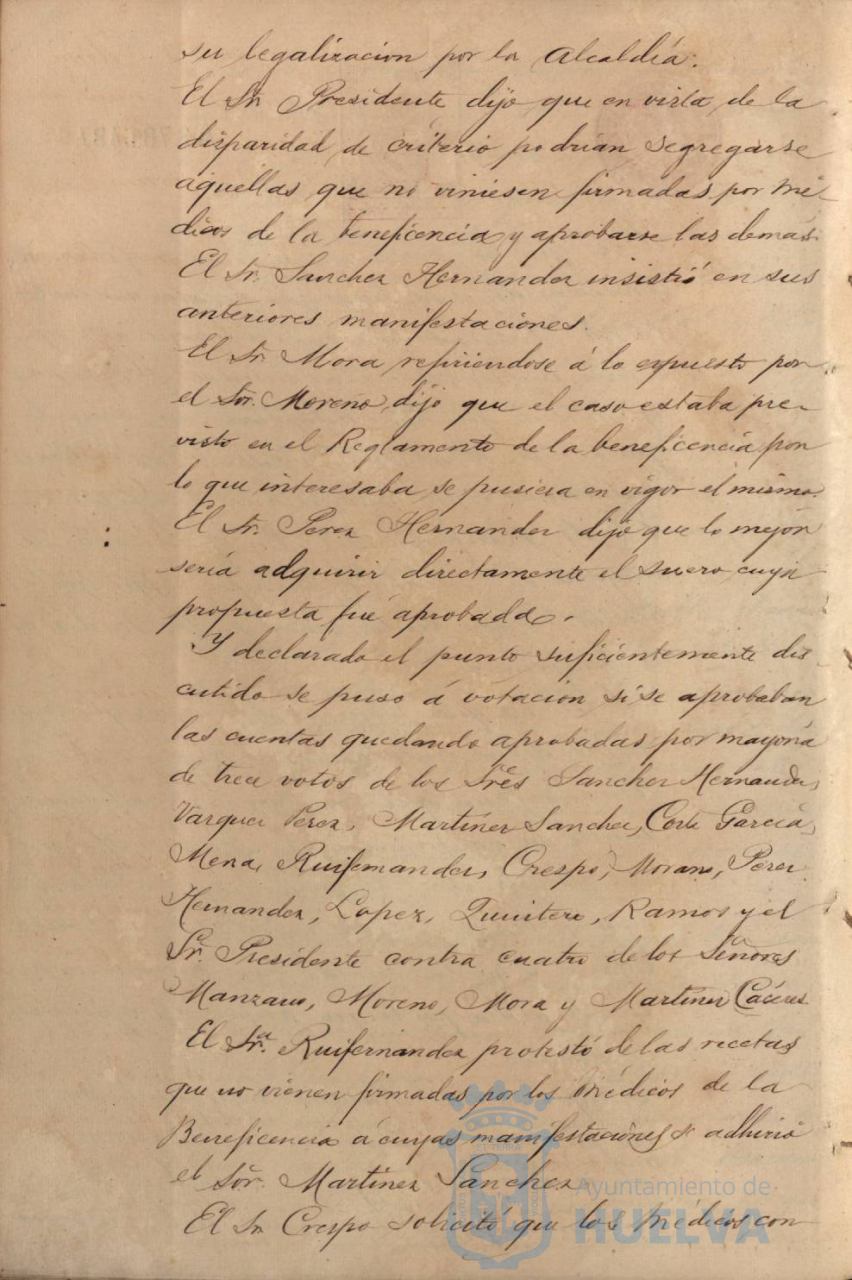 su legalizacion por la Alcaldía.
El Sr. Presidente dijo que en vista de la
disparidad de criterio podrian segregarse
aquellas que no viniesen firmadas por mé-
dicos de la beneficencia y aprobarse las demas.
El Sr. Sanchez Hernandez insistió en sus
anteriores manifestaciones.
El Sr. Mora refiriendose á lo expuesto por
el Sor. Moreno, dijo que el caso estaba pre-
visto en el Reglamento de la beneficencia por
lo que interesaba se pusiera en vigor el mismo.
El Sr. Perez Hernandez dijo que lo mejor
sería adquirir directamente el suero cuya
propuesta fué aprobada.
Y declarado el punto suficientemente dis-
cutido se puso á votacion si se aprobaban
las cuentas quedando aprobadas por mayoría
de trece votos de los Sres Sanchez Hernandez,
Vazquez Perez, Martinez Sanchez, Corte García,
Mena, Ruifernandez, Crespo, Morano, Perez
Hernandez, Lopez, Quintero, Ramos y el
Sr. Presidente contra cuatro de los Señores
Manzano, Moreno, Mora y Martinez Cáceres
El Sr. Ruifernandez protestó de las recetas
que no vienen firmadas por los médicos de la
Beneficencia á cuyas manifestaciones se adhirió
el Sor. Martinez Sanchez
El Sr. Crespo solicitó que los médicos con
Ayuntamiento de
HUELVA